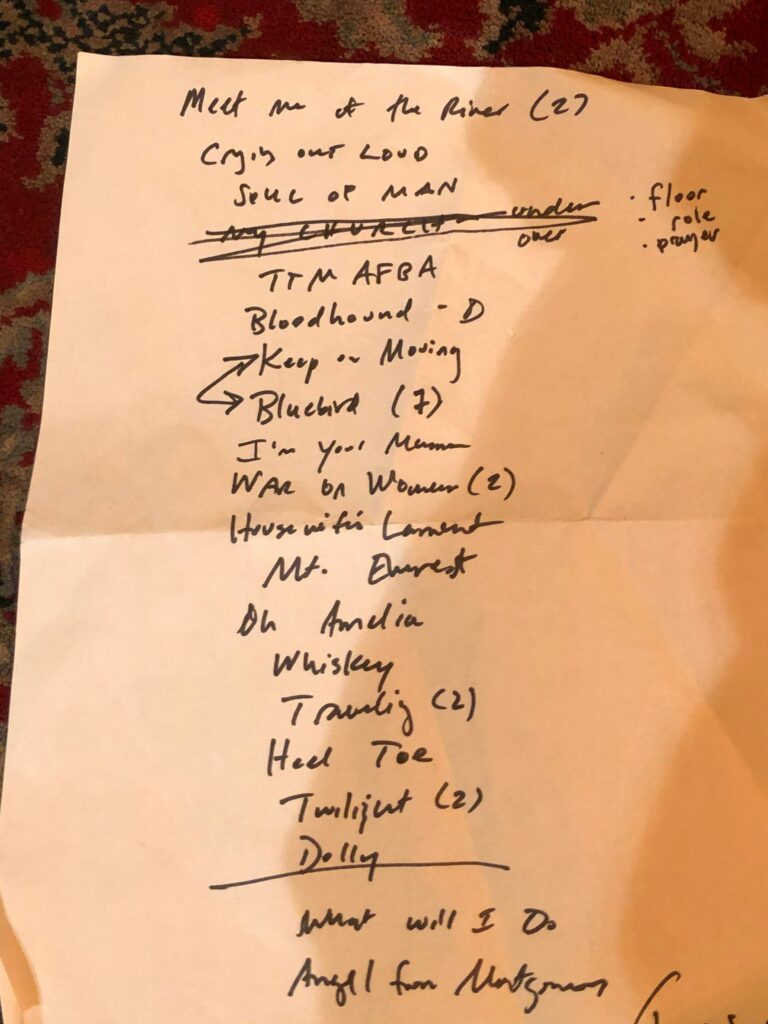 Meet me at the River (2)
Cryin out LOUD
SOUL OF MAN
MY CHURCH under
over
• floor
- role
• prayer
TTM AFBA
Bloodhound - D
Keep on Moving
Bluebird (7)
I'm your Mama
WAR on Women (2)
Housewife's Lament
Mt. Everest
Oh Amelia
Whiskey
Traveling (2)
Heel Toe
Twilight (2)
Dolly
What will I Do
Angel from Montgomery